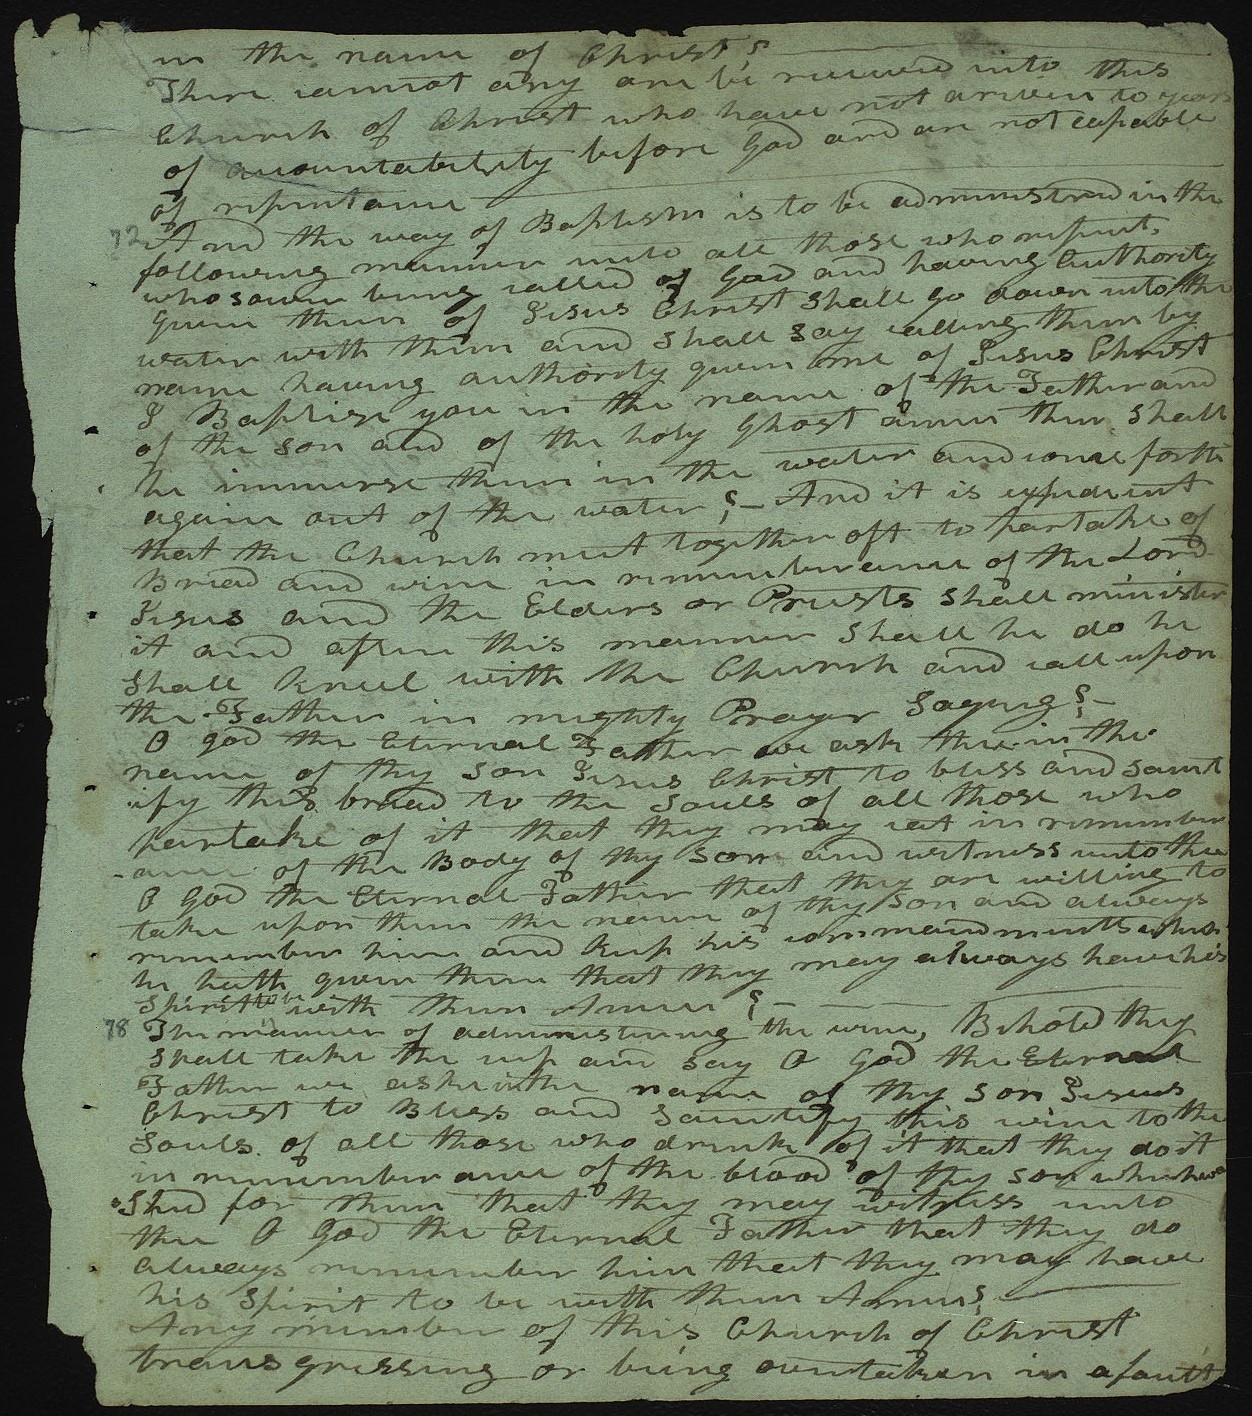 in the name of Christ
There cannot any one be received into this
Church of Christ who have not arriven to years
of accountability before God and are not capable
of repintance
72 And the way of Baptism is to be administred in the
following manner unto all those who repent,
whosoever being called of God and having Authority
given them of Jesus Christ shall go down into the
water with them and shall say calling them by
name having authority given me of Jesus Christ
I Baptise you in the name of the Father and
of the son and of the holy Ghost amen then shall
he immerse them in the water and come forth
again out of the water ;- And it is expedient
that the Church meet together oft to partake of
Bread and wine in rememberance of the Lord
Jesus and the Elders or Priests shall minister
it and after this manner shall he do he
shall kneel with the Church and call upon
the Father in mighty Prayer Saying ;-
O god the Eternal Father we ask thee in the
name of thy Son Jesus Christ to bless and sanct
ify this bread to the souls of all those who
partake of it that they may eat in remember
-ance of the Body of thy Son and witness unto thee
O God the Eternal Father that they are willing to
take upon them the name of thy Son and always
remember him and keep his commandments which
he hath given them that they may always have his
Spirit to be with them Amen ;-
78 The manner of administering the wine, Behold they
shall take the cup and say O God the Eternal
Father we ask thee in the name of thy Son Jesus
Christ to Bless and Sanctify this wine to the
souls of all those who drink of it that they do it
in rememberance of the blood of thy son which was
Shed for them that they may witness unto
thee O God the Eternal Father that they do
always remember him that they may have
his Spirit to be with them Amen ;
Any member of this Church of Christ
transgressing or being overtaken in a fault